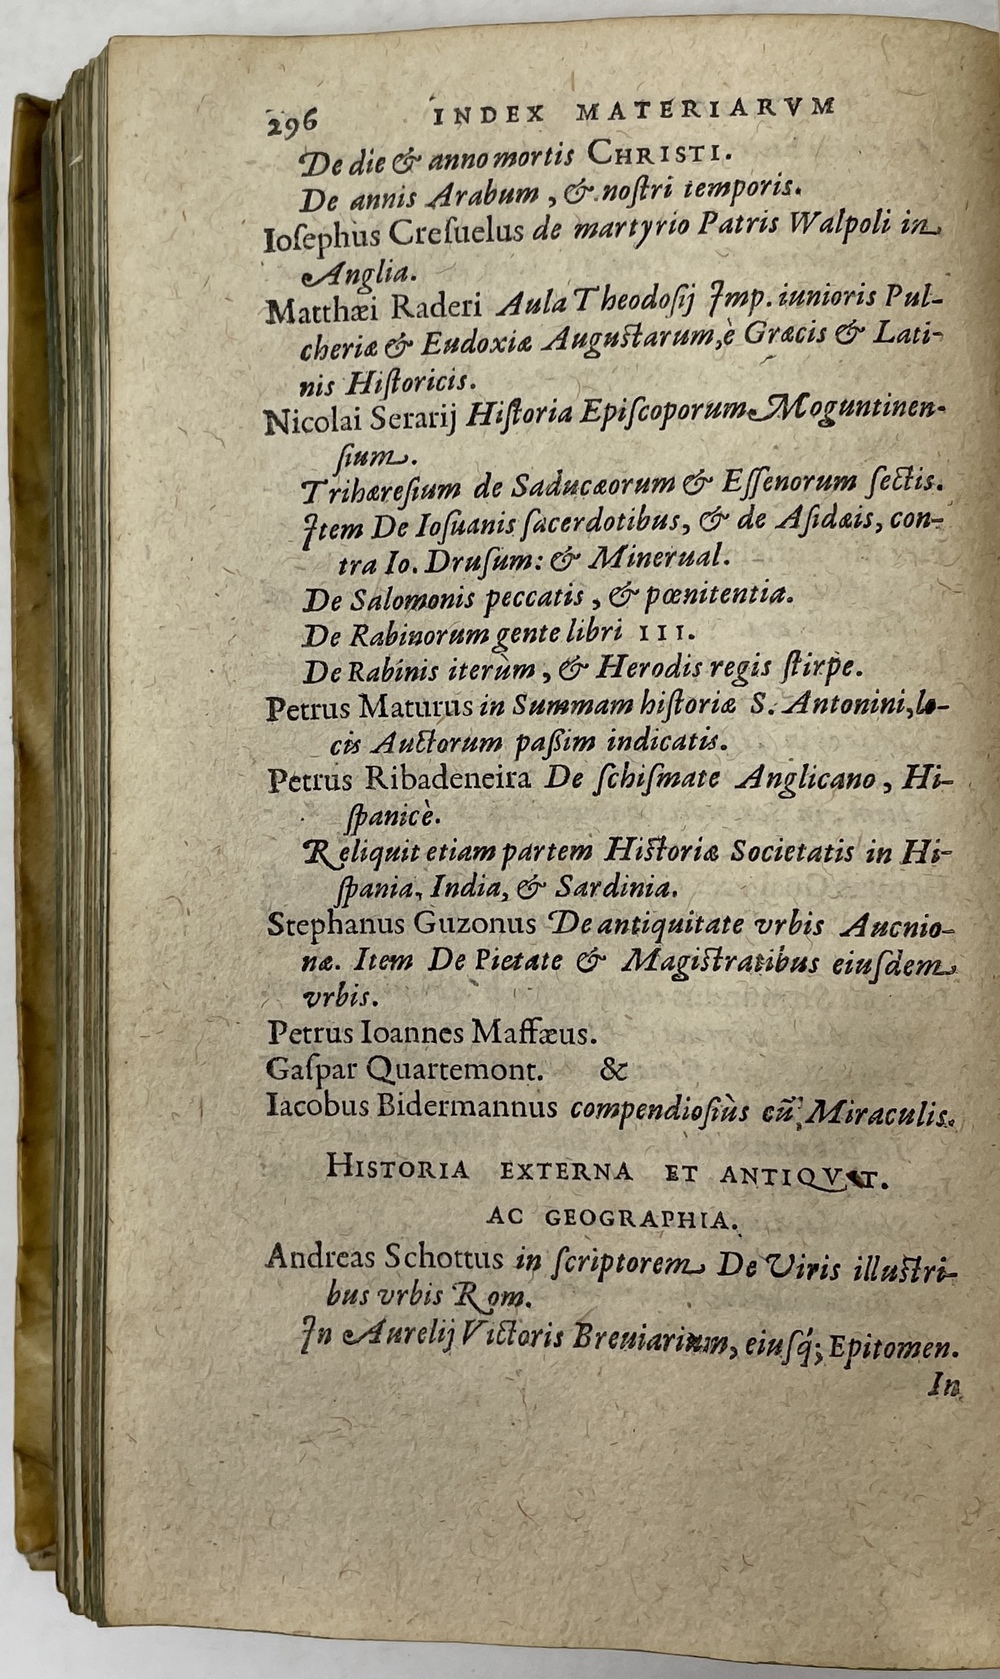 296 INDEX MATERIARVM
De die & anno mortis CHRISTI.
De annis Arabum, & noſtri temporis.
Ioſephus Creſuelus de martyrio Patris Walpoli in
Anglia.
Matthæi Raderi Aula Theodoſij Imp. iunioris Pul-
cheriæ & Eudoxiæ Auguſtarum, è Græcis & Lati-
nis Hiſtoricis.
Nicolai Serarij Hiſtoria Epiſcoporum Moguntinen-
ſium.
Trihæreſium de Saducæorum & Eſſenorum ſectis.
Item De Ioſuanis ſacerdotibus, & de Aſidæis, con-
tra Io. Druſum: & Minerual.
De Salomonis peccatis, & pœnitentia.
De Rabinorum gente libri III.
De Rabinis iterùm, & Herodis regis ſtirpe.
Petrus Maturus in Summam hiſtoriæ S. Antonini, lo-
cis Auctorum paßim indicatis.
Petrus Ribadeneira De ſchiſmate Anglicano, Hi-
ſpanicè.
Reliquit etiam partem Hiſtoriæ Societatis in Hi-
ſpania, India, & Sardinia.
Stephanus Guzonus De antiquitate vrbis Aucnio-
næ. Item De Pietate & Magiſtratibus eiuſdem
vrbis.
Petrus Ioannes Maffæus.
Gaſpar Quartemont. &
Iacobus Bidermannus compendioſiùs cũ Miraculis.
HISTORIA EXTERNA ET ANTIQVAT.
AC GEOGRAPHIA.
Andreas Schottus in ſcriptorem De Viris illuſtri-
bus vrbis Rom.
In Aurelij Victoris Breuiarium, eiuſq́; Epitomen.
In